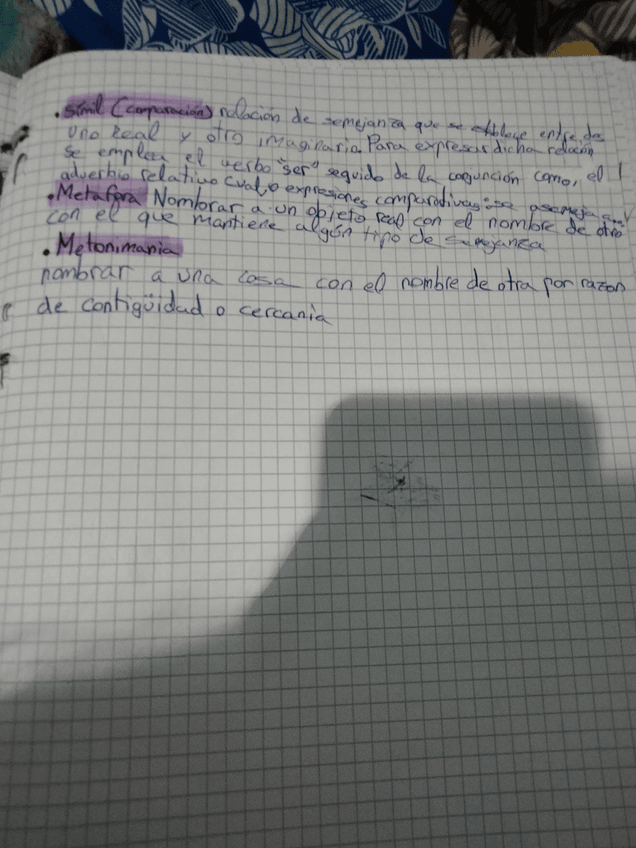 . símil (comparación) relación de semejanza que se establece entre dos
uno real y otro imaginario. Para expresar dicha relación
se emplea el verbo "ser" seguido de la conjunción como, el
adverbio relativo cual o expresiones comparativas: se asemeja
. Metafora Nombrar a un objeto real con el nombre de otro
con el que mantiene algún tipo de semejanza
. Metonimania
nombrar a una cosa con el nombre de otra por razon
de contigüidad o cercania